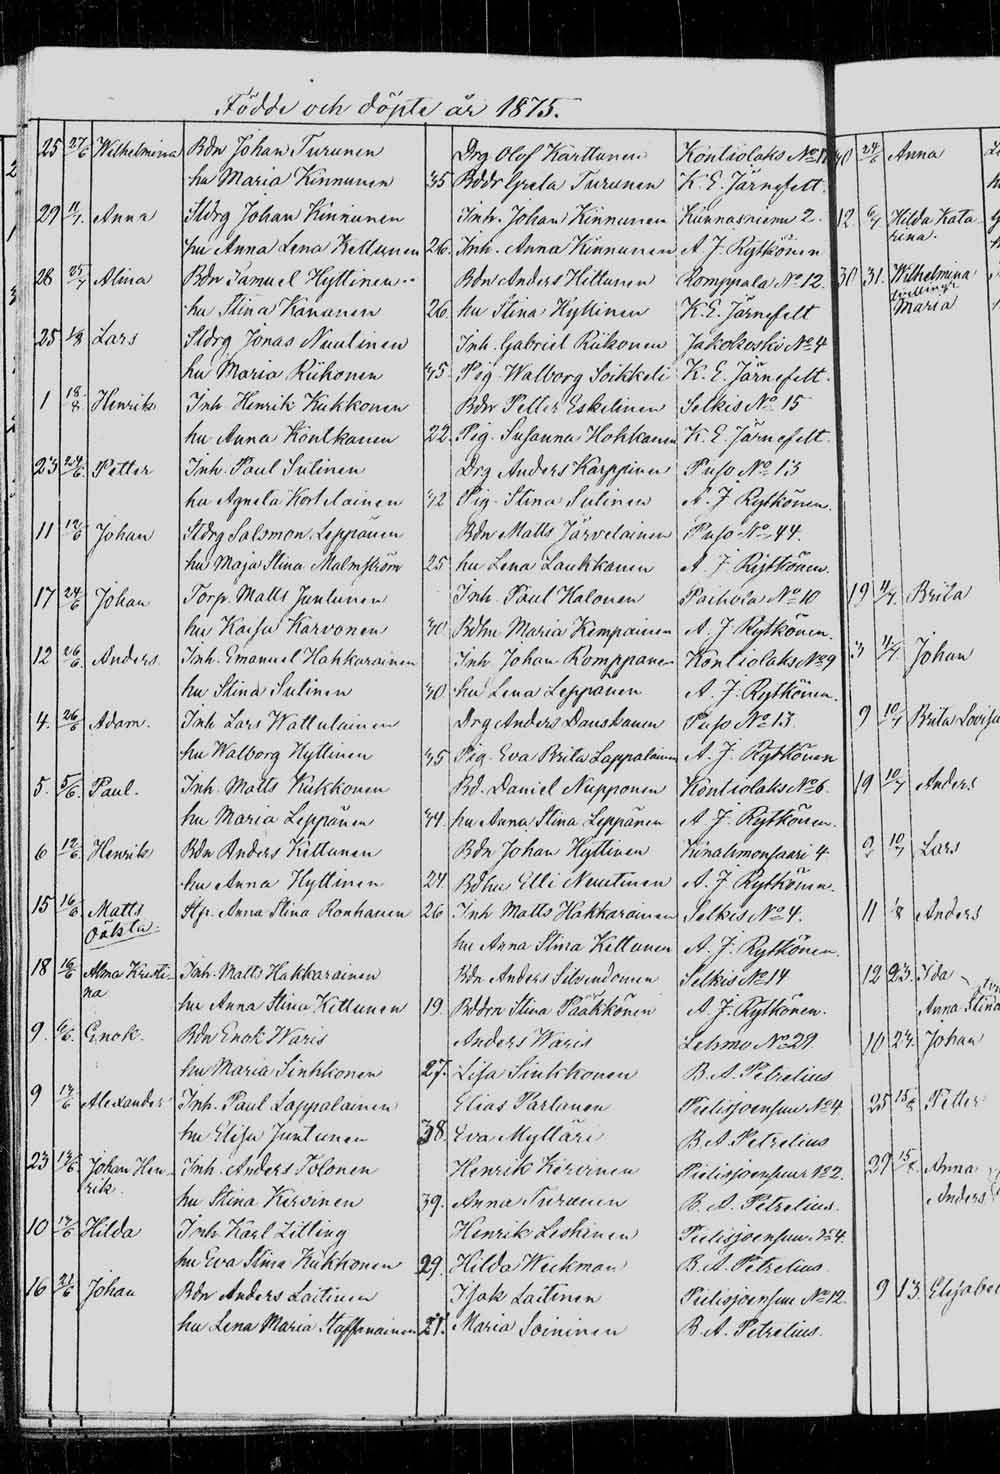 Födde och döpte år 1875.
25 27/6 Wilhelmina Bdn Johan Turunen Drg Olof Karttunen Kontiolaks No
hu Maria Kinnunen 35 Bddr Greta Turunen K. E. Järnefelt
29 11/7 Anna Sldrg Johan Kinnunen Inh. Johan Kinnunen Kunnasniemi 2.
hu Anna Lena Kettunen 26. Inh. Anna Kinnunen A J. Rytkönen
28 25/7 Alina Bdn Samuel Hyttinen Bdn Anders Hiltunen Romppala No 12.
hu Stina Kananen 26. hu Stina Hyttinen K. E. Järnefelt
25 1/8 Lars Sldrg Jonas Nuutinen Inh. Gabriel Riikonen Jakokoski No 4
hu Maria Riikonen 35. Pig. Walborg Soikkeli K. E. Järnefelt.
1 18/8 Henrik Inh. Henrik Kukkonen Bdn Petter Eskelinen Selkis No 15
hu Anna Kontkanen 22. Pig. Susanna Hokkanen K. E. Järnefelt.
23 24/6 Petter Inh. Paul Sutinen Drg Anders Karppinen Puso No 13
hu Agneta Kortelainen 32 Pig. Stina Sutinen A. J. Rytkönen.
11 12/6 Johan Sldrg Salomon Leppänen Bdn Matts Järvelainen Puso No 44.
hu Maja Stina Malmström 25 hu Lena Laukkanen A. J. Rytkönen.
17 24/6 Johan Torp. Matts Juntunen Inh. Paul Halonen No 10
hu Kaisa Karvonen 30. Bdhu Maria Kempainen A. J. Rytkönen.
12 26/6 Anders Inh. Emanuel Hakkarainen Inh Johan Romppanen Kontiolaks No 9
hu Stina Sutinen 30. hu Lena Leppänen A. J. Rytkönen.
4. 26/6 Adam. Inh Lars Wattulainen Drg Anders Danskanen Puso No 13.
hu Walborg Hyttinen 35 Pig. Eva Brita Lappalainen A. J. Rytkönen
5. 5/6. Paul. Inh. Matts Kukkonen Bd. Daniel Nupponen Kontiolaks No 6.
hu Maria Leppänen 34. hu Anna Stina Leppänen A J. Rytkönen.
6 12/6. Henrik Bdn Anders Kettunen Bdn Johan Hyttinen Kinahmonsaari 4
hu Anna Hyttinen 24. Bdhu Elli Nuutinen A. J. Rytkönen.
15 16/6 Matts Anna Stina Ronkanen 26 Inh Matts Hakkarainen Selkis No 4.
oäkta. hu Anna Stina Kettunen A. J. Rytkönen.
18 16/6 Alma Kristi- Inh. Matts Hakkarainen Bdn Anders Silvendoinen Selkis No 14
na hu Anna Stina Kettunen 19. Bddrn Stina Pääkkönen A. J. Rytkönen.
9. 6/6. Enok. Bdn Enok Waris Anders Waris Lehmo No 29.
hu Maria Sinkkonen 27. Lisa Sinkkonen B. A. Petrelius
9 13/6 Alexander Inh. Paul Lappalainen Elias Partanen Pielisjoensuu No 4.
hu Elisa Juntunen 38. Eva Mylläri B. A. Petrelius
23 13/6 Johan Hen- Inh. Anders Tolonen Henrik Kirvinen Pielisjoensuu No 2.
rik. hu Stina Kirvinen 39. Anna Turunen B. A. Petrelius.
10 13/6 Hilda Inh Karl Litting Henrik Leskinen Pielisjoensuu No 4.
hu Eva Stina Kukkonen 29. Hilda Weckman B. A. Petrelius.
16 21/6 Johan Bdn Anders Laitinen Isak Laitinen Pielisjoensuu No 12.
hu Lena Maria Staffanainen 21. Maria Soininen B. A. Petrelius.
30 24/6 Anna
12. 6/7 Hilda Kata-
rina.
30 31. Wilhelmina
tvillingr
Maria
19 4/7. Brita
3 4/7 Johan
9 10/7 Brita Lovisa
19 10/7 Anders
9 10/7 Lars
11 1/8 Anders
12 23. Ida
Anna Stina
10 23. Johan
25 15/8 Petter
29 15/8 Anna
Anders
9 13. Elisabet